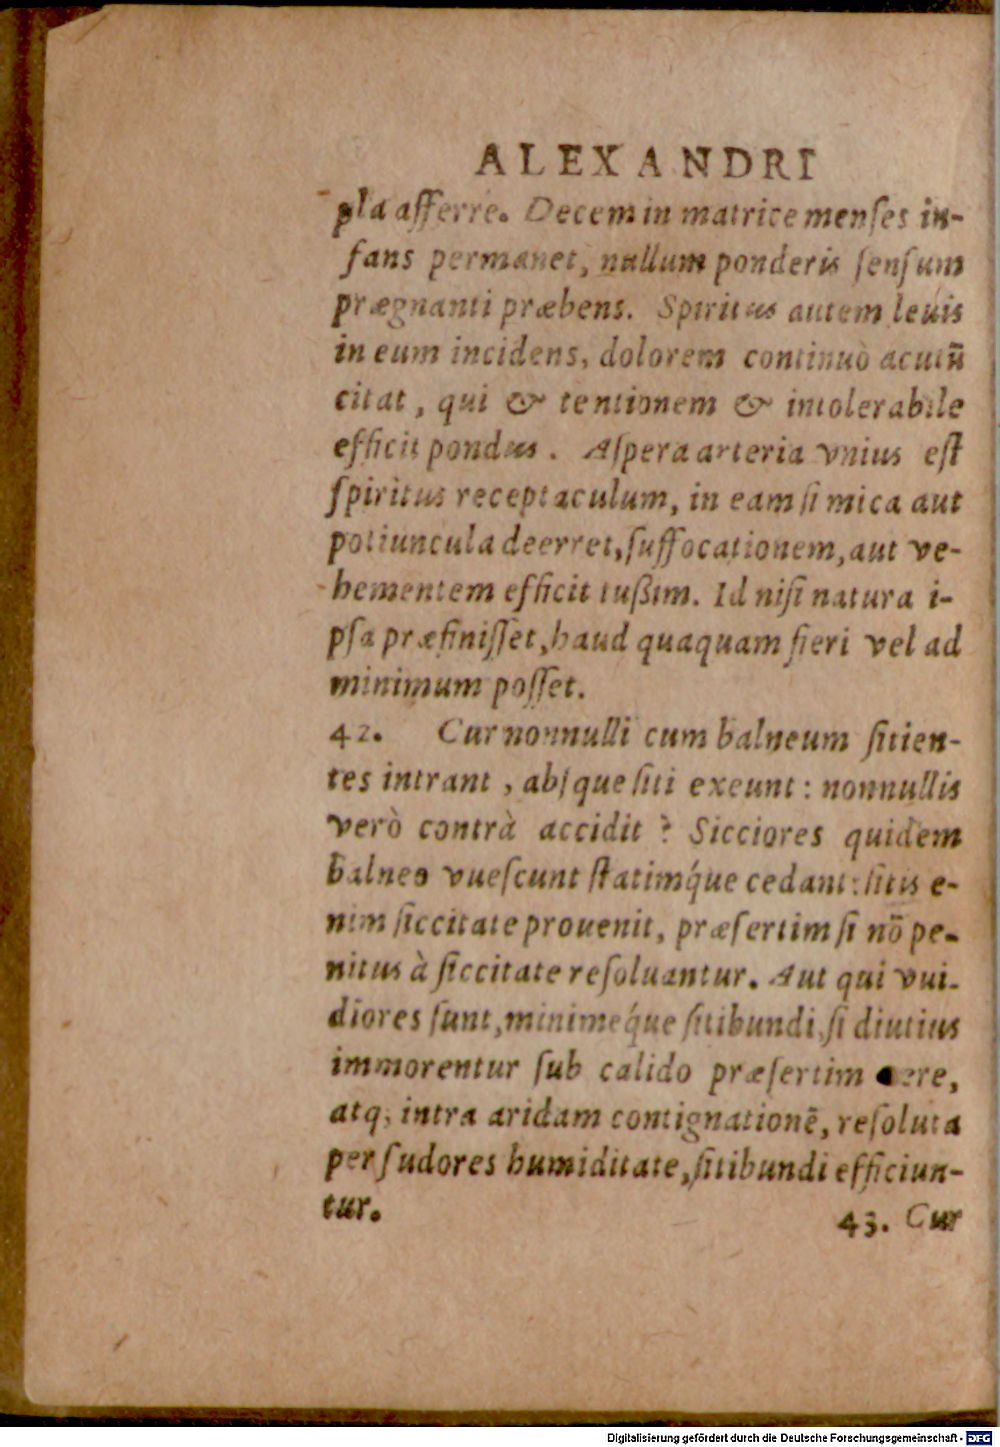 ALEXANDRI
pla afferre. Decem in matrice menſes in-
fans permanet, nullum ponderis ſenſum
prægnanti præbens. Spiritus autem leuis
in eum incidens, dolorem continuò acutũ
citat, qui & tentionem & intolerabile
efficit pondus. Aſpera arteria vnius eſt
ſpiritus receptaculum, in eam ſi mica aut
potiuncula deerret, ſuffocationem, aut ve-
hementem efficit tußim. Id niſi natura i-
pſa præfiniſſet, haud quaquam fieri vel ad
minimum poſſet.
42. Cur nonnulli cum balneum ſitien-
tes intrant, abſque ſiti exeunt: nonnullis
verò contrà accidit? Sicciores quidem
balneo vueſcunt ſtatimq́ue cedant: ſitis e-
nim ſiccitate prouenit, præſertim ſi nō pe-
nitus à ſiccitate reſoluantur. Aut qui vui-
diores ſunt, minimeq́ue ſitibundi, ſi diutius
immorentur ſub calido præſertim aere,
atq; intra aridam contignationē, reſoluta
per ſudores humiditate, ſitibundi efficiun-
tur.
43. Cur
Digitalisierung gefördert durch die Deutsche Forschungsgemeinschaft - DFG